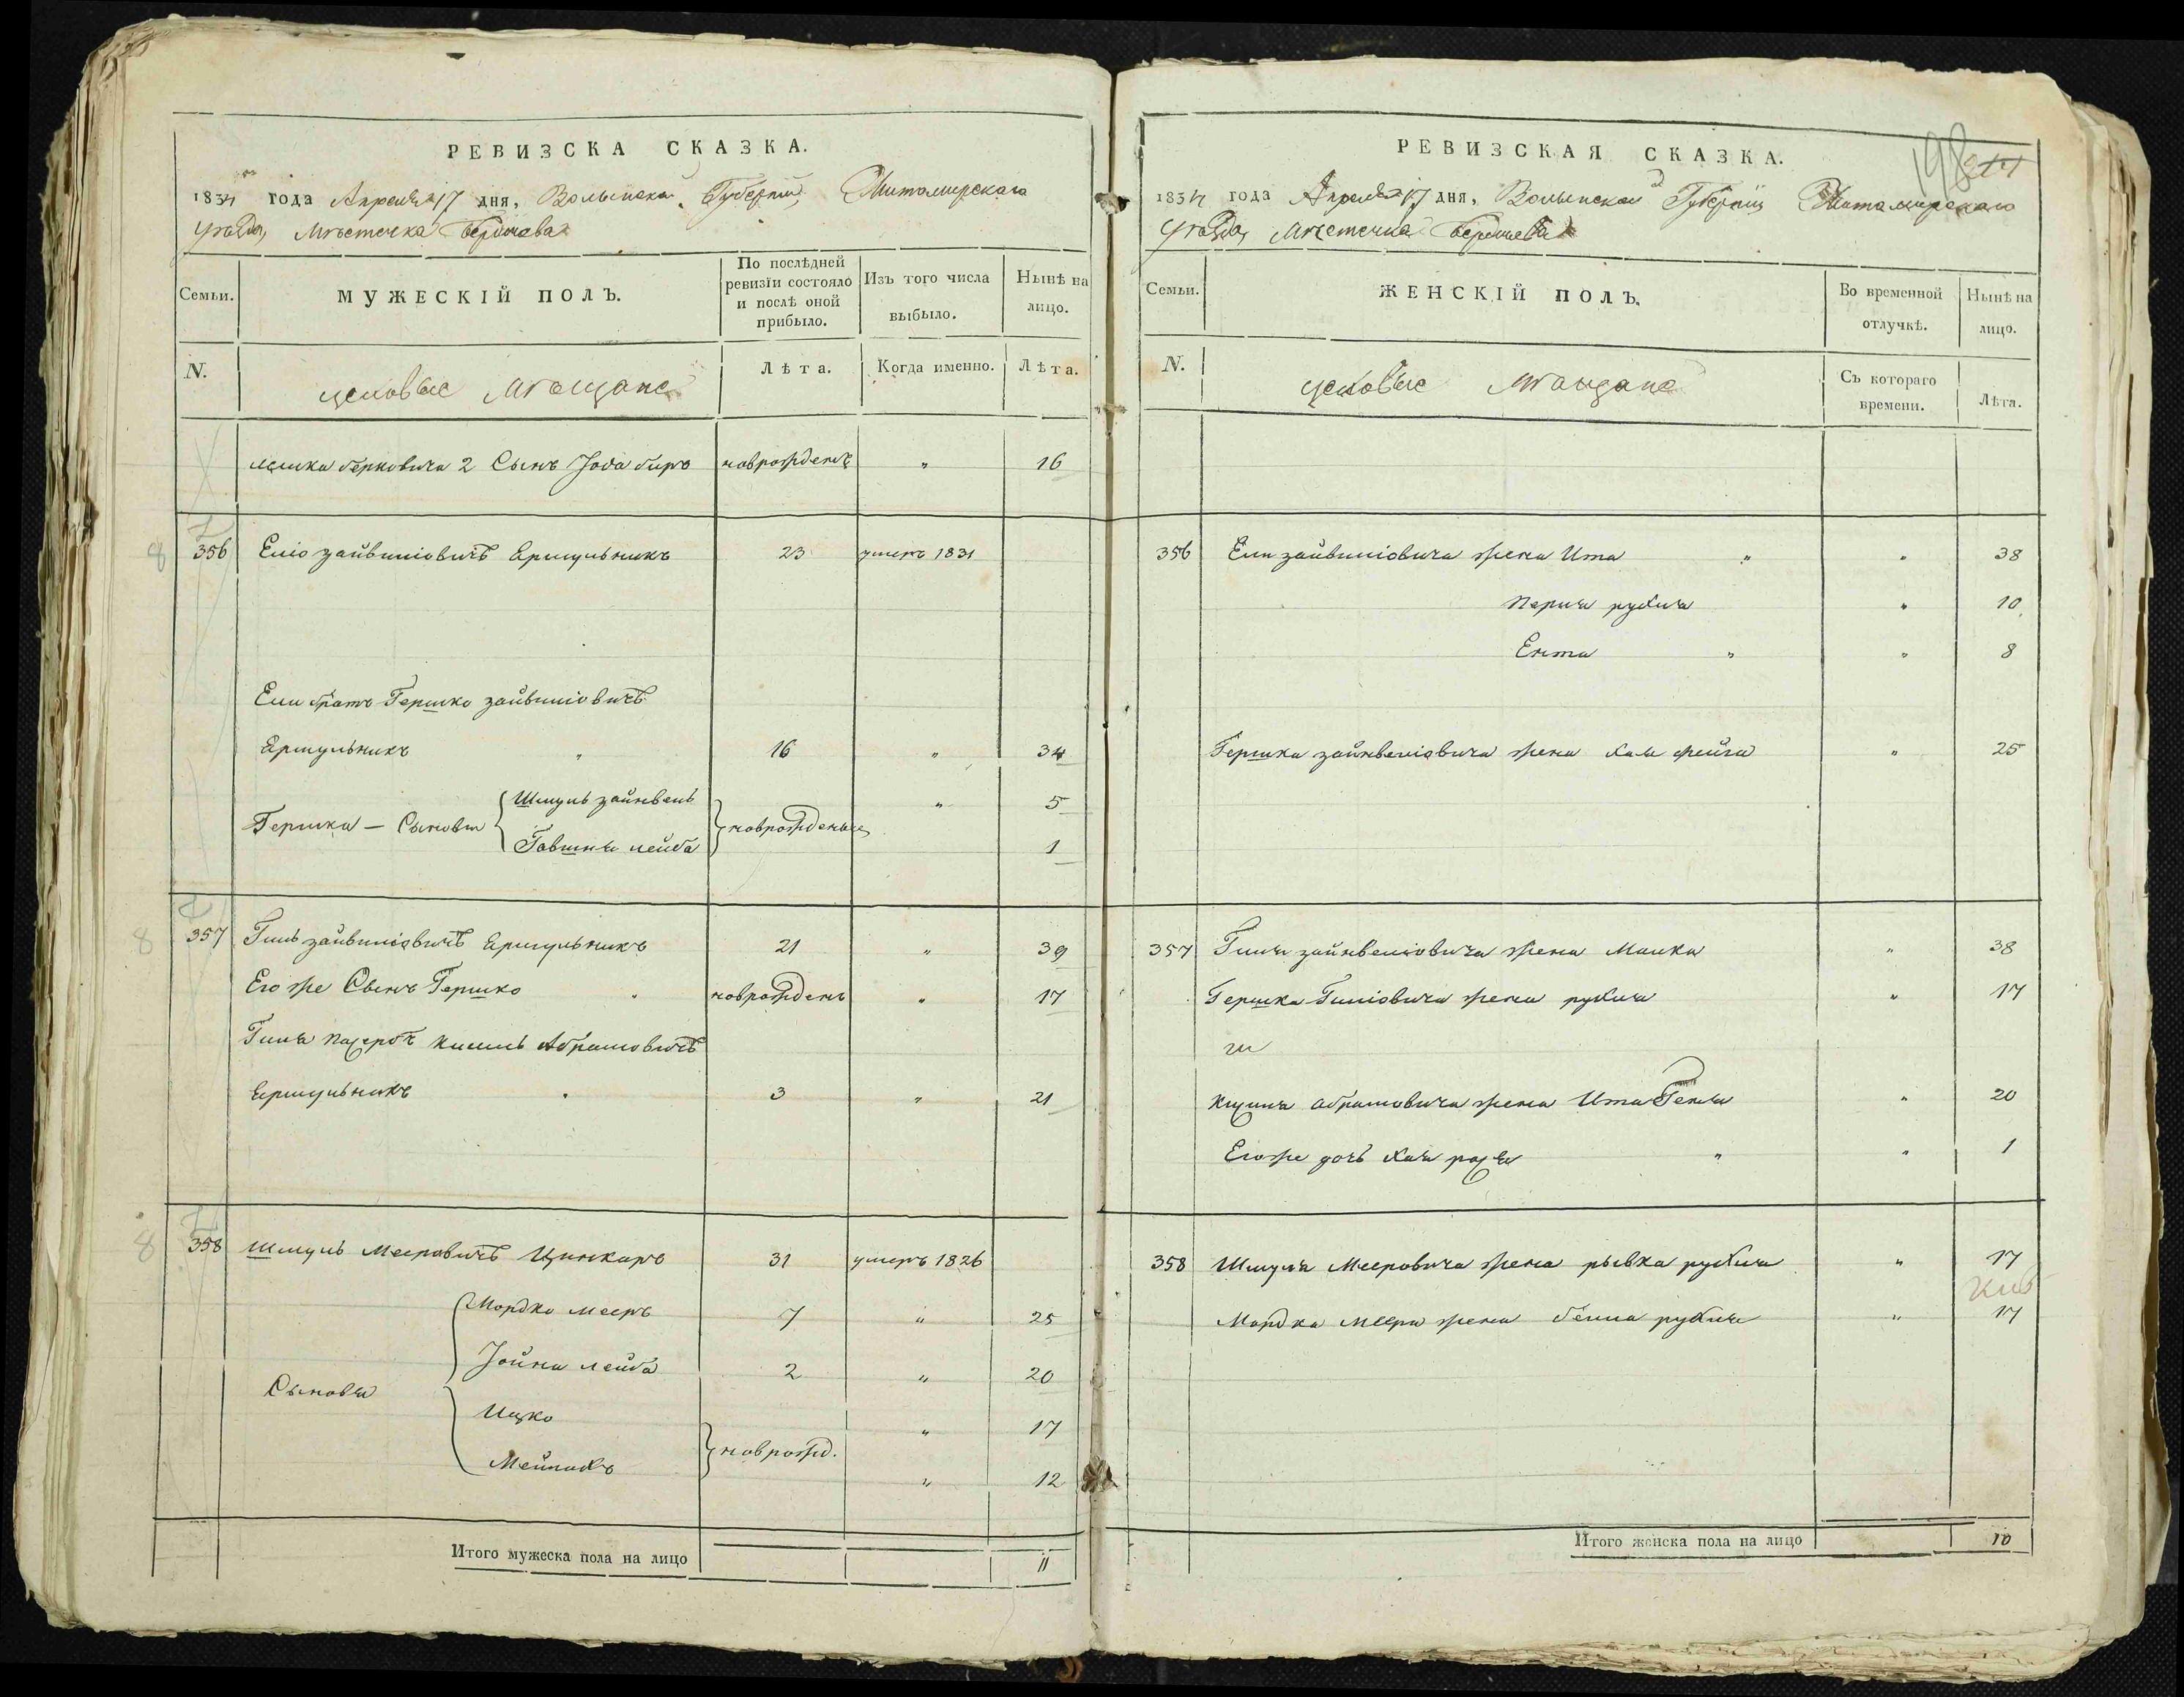 РЕВИЗСКА СКАЗКА.
1834 года Апреля 17 дня, Волынской Губернии, Житомирскаго
уѣзда, Мѣстечка Бердичева
Семьи.
МУЖЕСКІЙ ПОЛЪ.
По послѣдней ревизіи состояло и послѣ оной прибыло.
Изъ того числа выбыло.
Нынѣ на лицо.
N.
цеховые мѣщане
Лѣта.
Когда именно.
Лѣта.
берковича 2 Сынъ новрожденъ " 16
8 356 Еліо зайвиліовичъ Ермульникъ 23 умеръ 1831
Ели братъ Гершко зайвиліовичъ
Ермульникъ " 16 " 34
Гершка — Сыновя { Шмуль зайнвель } новрожденые " 5
Говшия лейба 1
8 357 Гиль зайвиліовичъ Ермульникъ 21 " 39
Его же Сынъ Гершко " новрожденъ " 17
Гиля Абрамовичъ
Ермульникъ " 3 " 21
8 358 Шмуль Мееровичъ Цинкаръ 31 умеръ 1826
Сыновя { Мордко мееръ 7 " 25
Іойна лейба 2 " 20
Ицко } новрожд. " 17
" 12
Итого мужеска пола на лицо 11
РЕВИЗСКАЯ СКАЗКА.
198
1834 года Апреля 17 дня, Волынской Губерніи Житомирскаго
уѣзда, Мѣстечка Бердичева
Семьи.
ЖЕНСКІЙ ПОЛЪ.
Во временной отлучкѣ.
Нынѣ на лицо.
N.
цеховые мѣщане
Съ котораго времени.
Лѣта.
356 Ели зайвиліовича жена Ита " " 38
Перля рухля " 10
Ента " " 8
Гершка зайнвеліовича жена фейга " 25
357 Гиля зайнвеліовича жена Малка " 38
Гершка Гиліовича жена рухля " 17
абрамовича жена Ита Геня " 20
Его же дочь хая " " 1
358 Шмуля Мееровича жена рывка рухля " 17
Мордка меера жена бейла рухля " 17
Итого женска пола на лицо 10